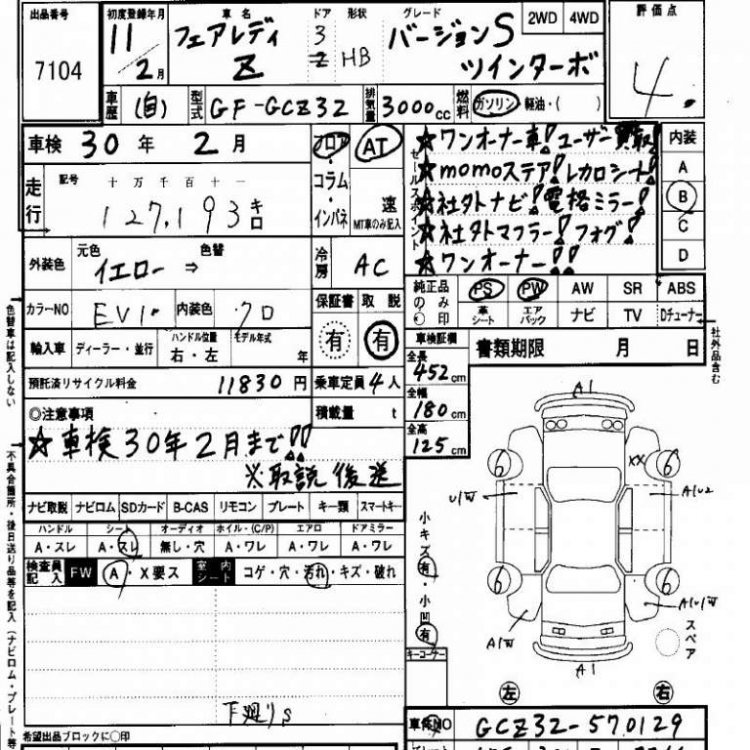 出品番号
7104
初度登録年月
11年
2月
車名
フェアレディ
Z
ドア
3
形状
HB
グレード
バージョンS
ツインターボ
2WD 4WD
評価点
4.
車歴 (自)
型式 GF-GCZ32
排気量 3000cc
燃料 ガソリン・軽油・( )
車検 30年 2月
フロア・コラム・インパネ
AT
速
MT車のみ記入
セールスポイント
☆ワンオーナー車!ユーザー買取!
☆momoステア!レカロシート!
☆社外ナビ!電格ミラー!
☆社外マフラー!フォグ!
☆ワンオーナー!!
内装
A
B
C
D
走行
記号 十万千百十一
127,193キロ
外装色
元色 イエロー ⇒ 色替
冷房 AC
カラーNO EV1
内装色 クロ
保証書 有
取説 有
純正品のみ○印
PS PW AW SR ABS
革シート エアバック ナビ TV Dチューナー
輸入車 ディーラー・並行
ハンドル位置 右・左
モデル年式 年
車検証欄
全長 452cm
全幅 180cm
全高 125cm
書類期限 月 日
預託済リサイクル料金 11830円
乗車定員 4人
積載量 t
◎注意事項
☆車検30年2月まで!!
※取説後送
ナビ取説 ナビロム SDカード B-CAS リモコン プレート キー類 スマートキー
ハンドル シート オーディオ ホイル・(C/P) エアロ ドアミラー
A・スレ A・スレ 無し・穴 A・ワレ A・ワレ A・ワレ
検査員記入 FW A・X要ス 室内シート コゲ・穴・汚れ・キズ・破れ
下廻りS
希望出品ブロックに○印
色替車は記入しない
不具合箇所・後日送り品等を記入(ナビロム・プレート等
社外品含む
小キズ有・小凹有
キーコーナー
A1
6 6
XX
U1W
A1U2
6 6
A1W
A1U1W
スペア
A1
左 右
車体NO GCZ32-570129